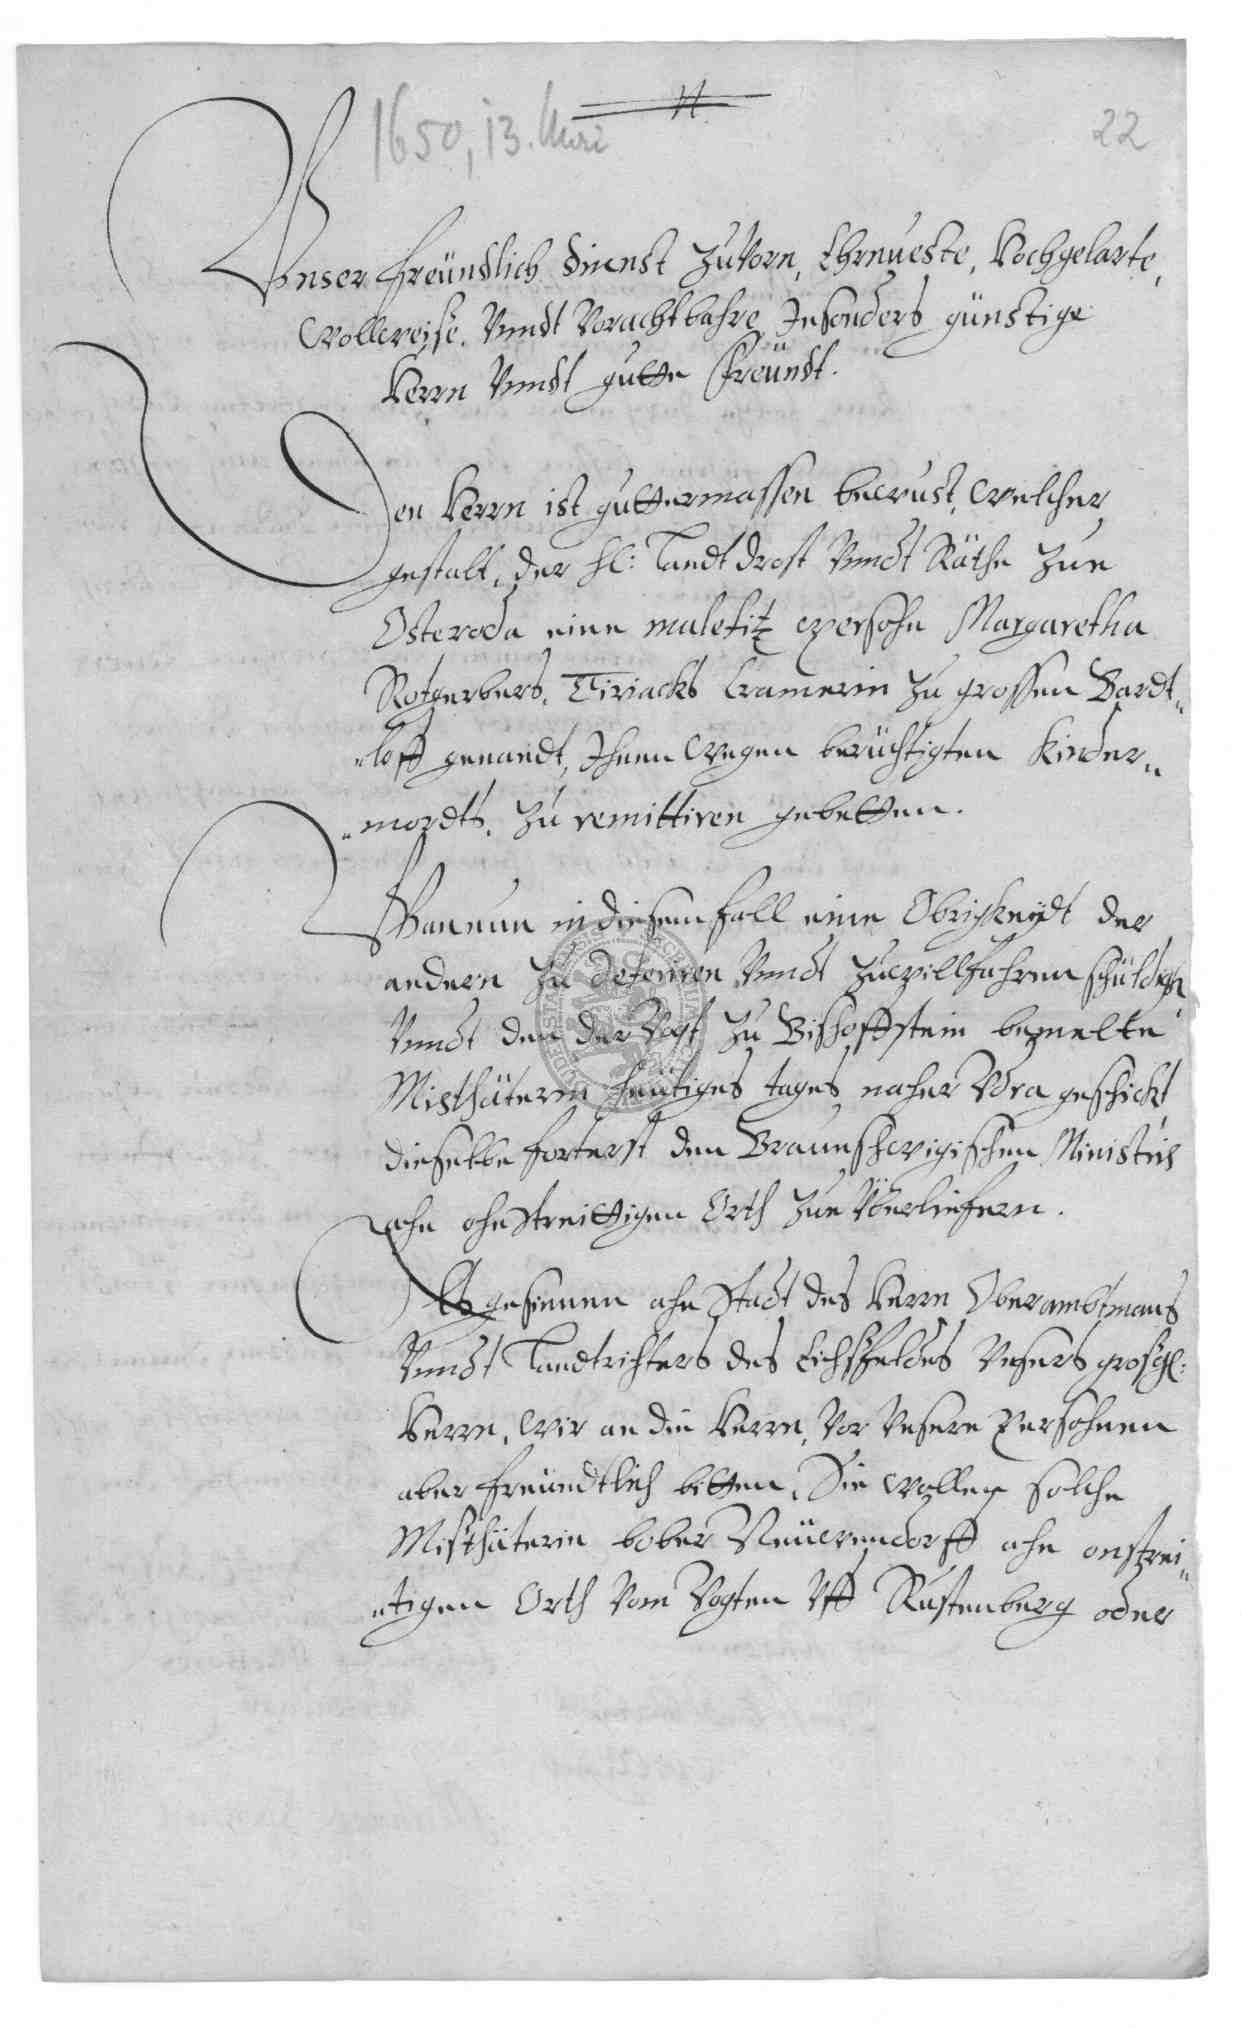 1650, 13. Mai
22
Unser freündtlich dienst zuvorn, Ehrnueste, Hochgelarte,
Wollweise, Vnndt Vorachtbahre Insonders günstige
Herrn Vnndt gutte Freündt.
Den Herrn ist guttermassen bewust, welcher
gestalt, der Hl: Landtdrost Vnndt Räthe zue
Osteroda eine malefitz persohn Margaretha
Rotgerbers, Ciriacks Cramerin zu grossen Bardt„
„loff genandt, Ihnen wegen berüchtigten Kinder„
„mordts, zu remittiren gebetten.
Wan nun in diesem fall eine Obrigkeydt der
andern zu deferiren Vnndt zuwillfahren schuldigh
Vnndt den der Vogt zu Bischoffstein bemelte
Misthäterin heütiges tages naher Vdra geschickt
dieselbe forterst den Braunschweigischen Ministris
ahn ohnstreittigen Orth zue Vberliefern.
Als gesinnen ahn Stadt des Herrn Oberambtmans
Vnndt Landtrichters des Eichsfeldes Vnsers grosgl:
Herrn, wir an die Herrn, Vor Vnsere Persohnen
aber freündtlich bitten, Sie wollen solche
Misthäterin bober Neüwendorff ahn onstrei„
„tigen Orth Vom Vogten Vff Rustenberg oder